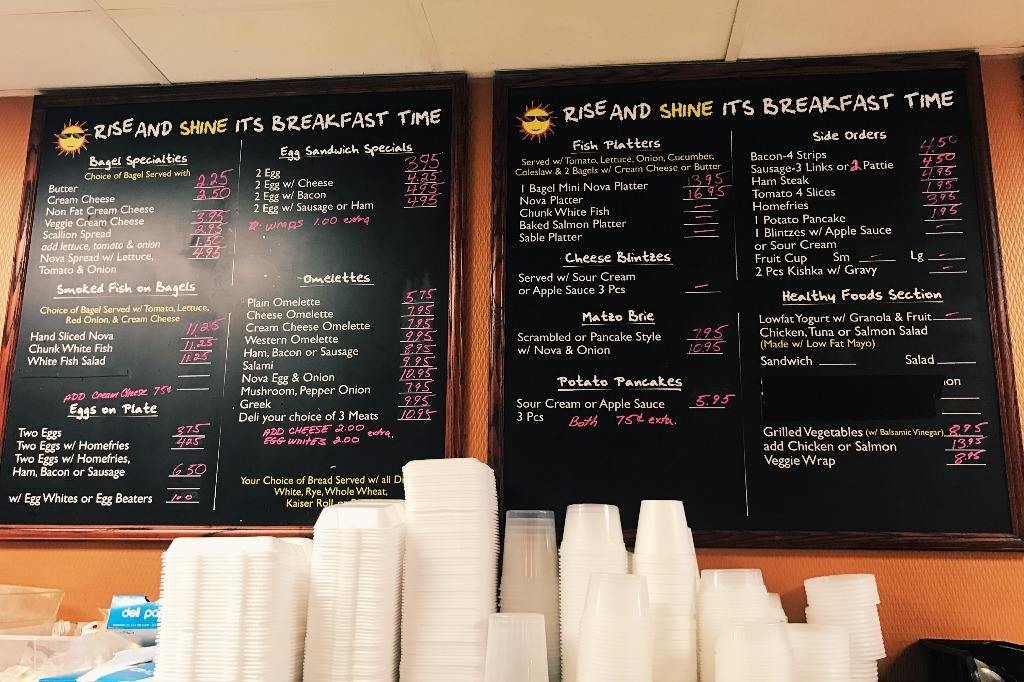 RISE AND SHINE ITS BREAKFAST TIME
Bagel Specialties
Choice of Bagel Served with
Butter 2.25
Cream Cheese 2.50
Non Fat Cream Cheese
Veggie Cream Cheese 3.95
Scallion Spread 2.95
add lettuce, tomato & onion 1.50
Nova Spread w/ Lettuce, 4.95
Tomato & Onion
Smoked Fish on Bagels
Choice of Bagel Served w/ Tomato, Lettuce,
Red Onion, & Cream Cheese
Hand Sliced Nova 11.25
Chunk White Fish 11.25
White Fish Salad 11.25
ADD Cream Cheese 75¢
Eggs on Plate
Two Eggs 3.75
Two Eggs w/ Homefries 4.25
Two Eggs w/ Homefries,
Ham, Bacon or Sausage 6.50
w/ Egg Whites or Egg Beaters 1.00
Egg Sandwich Specials
2 Egg 3.95
2 Egg w/ Cheese 4.25
2 Egg w/ Bacon 4.95
2 Egg w/ Sausage or Ham 4.95
wraps 1.00 extra
Omelettes
Plain Omelette 5.75
Cheese Omelette 7.95
Cream Cheese Omelette 7.95
Western Omelette 9.95
Ham, Bacon or Sausage 8.95
Salami 9.95
Nova Egg & Onion 10.95
Mushroom, Pepper Onion 7.95
Greek 9.95
Deli your choice of 3 Meats 10.95
ADD CHEESE 2.00
EGG WHITES 2.00 extra.
Your Choice of Bread Served w/ all
White, Rye, Whole Wheat,
Kaiser Roll
RISE AND SHINE ITS BREAKFAST TIME
Fish Platters
Served w/ Tomato, Lettuce, Onion, Cucumber,
Coleslaw & 2 Bagels w/ Cream Cheese or Butter
1 Bagel Mini Nova Platter 13.95
Nova Platter 16.95
Chunk White Fish —
Baked Salmon Platter —
Sable Platter —
Cheese Blintzes
Served w/ Sour Cream
or Apple Sauce 3 Pcs —
Matzo Brie
Scrambled or Pancake Style 7.95
w/ Nova & Onion 10.95
Potato Pancakes
Sour Cream or Apple Sauce 5.95
3 Pcs Both 75¢ extra.
Side Orders
Bacon-4 Strips 4.50
Sausage-3 Links or 2 Pattie 4.50
Ham Steak 4.95
Tomato 4 Slices 1.95
Homefries 3.95
1 Potato Pancake 1.95
1 Blintzes w/ Apple Sauce —
or Sour Cream
Fruit Cup Sm — Lg —
2 Pcs Kishka w/ Gravy —
Healthy Foods Section
Lowfat Yogurt w/ Granola & Fruit —
Chicken, Tuna or Salmon Salad
(Made w/ Low Fat Mayo)
Sandwich Salad
Grilled Vegetables (w/ Balsamic Vinegar) 8.95
add Chicken or Salmon 13.95
Veggie Wrap 8.95
deli